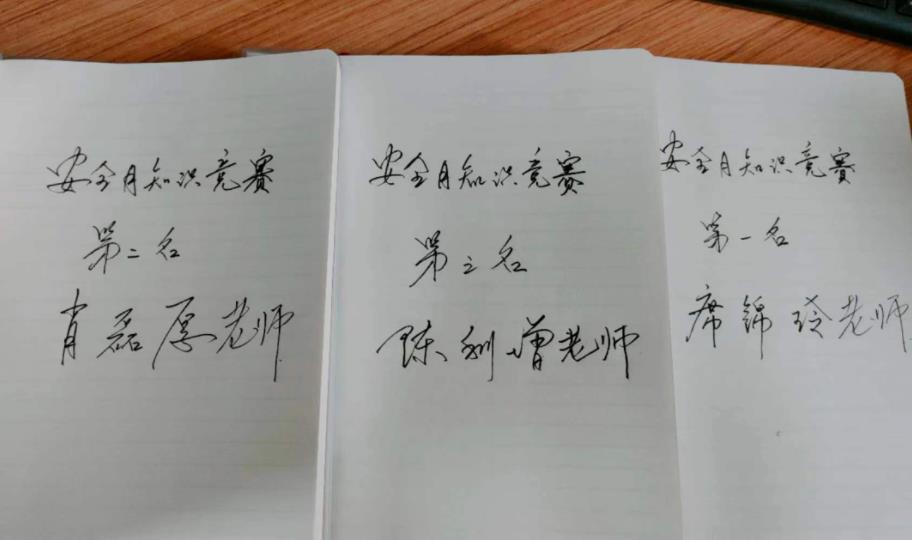 安全月知识竞赛
第二名
肖磊愿老师
安全月知识竞赛
第三名
陈利增老师
安全月知识竞赛
第一名
席锦玲老师